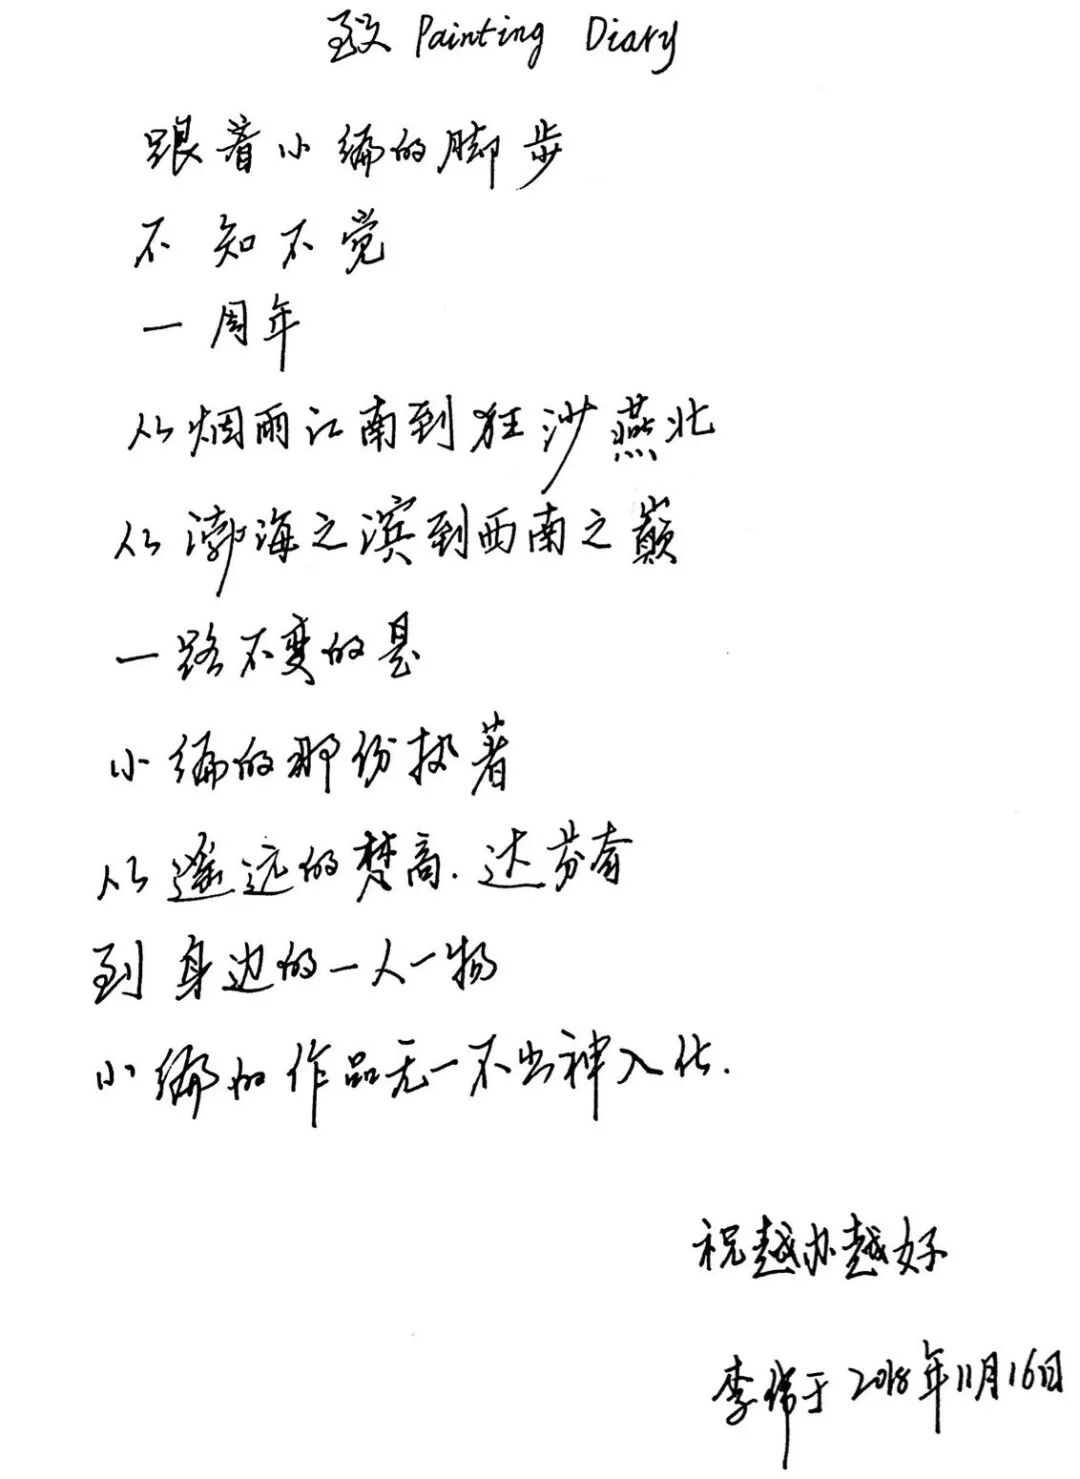 致 Painting Diary
跟着小编的脚步
不知不觉
一周年
从烟雨江南到狂沙燕北
从渤海之滨到西南之巅
一路不变的是
小编的那份执著
从遥远的梵高.达芬奇
到身边的一人一物
小编的作品无一不出神入化.
祝越办越好
李伟于2018年11月16日